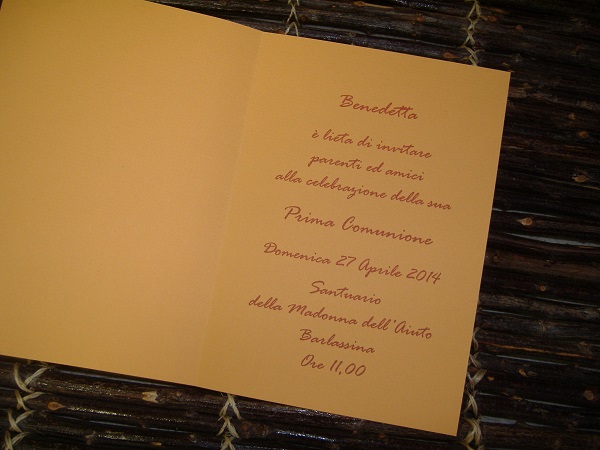 Benedetta
è lieta di invitare
parenti ed amici
alla celebrazione della sua
Prima Comunione
Domenica 27 Aprile 2014
Santuario
della Madonna dell'Aiuto
Barlassina
Ore 11,00